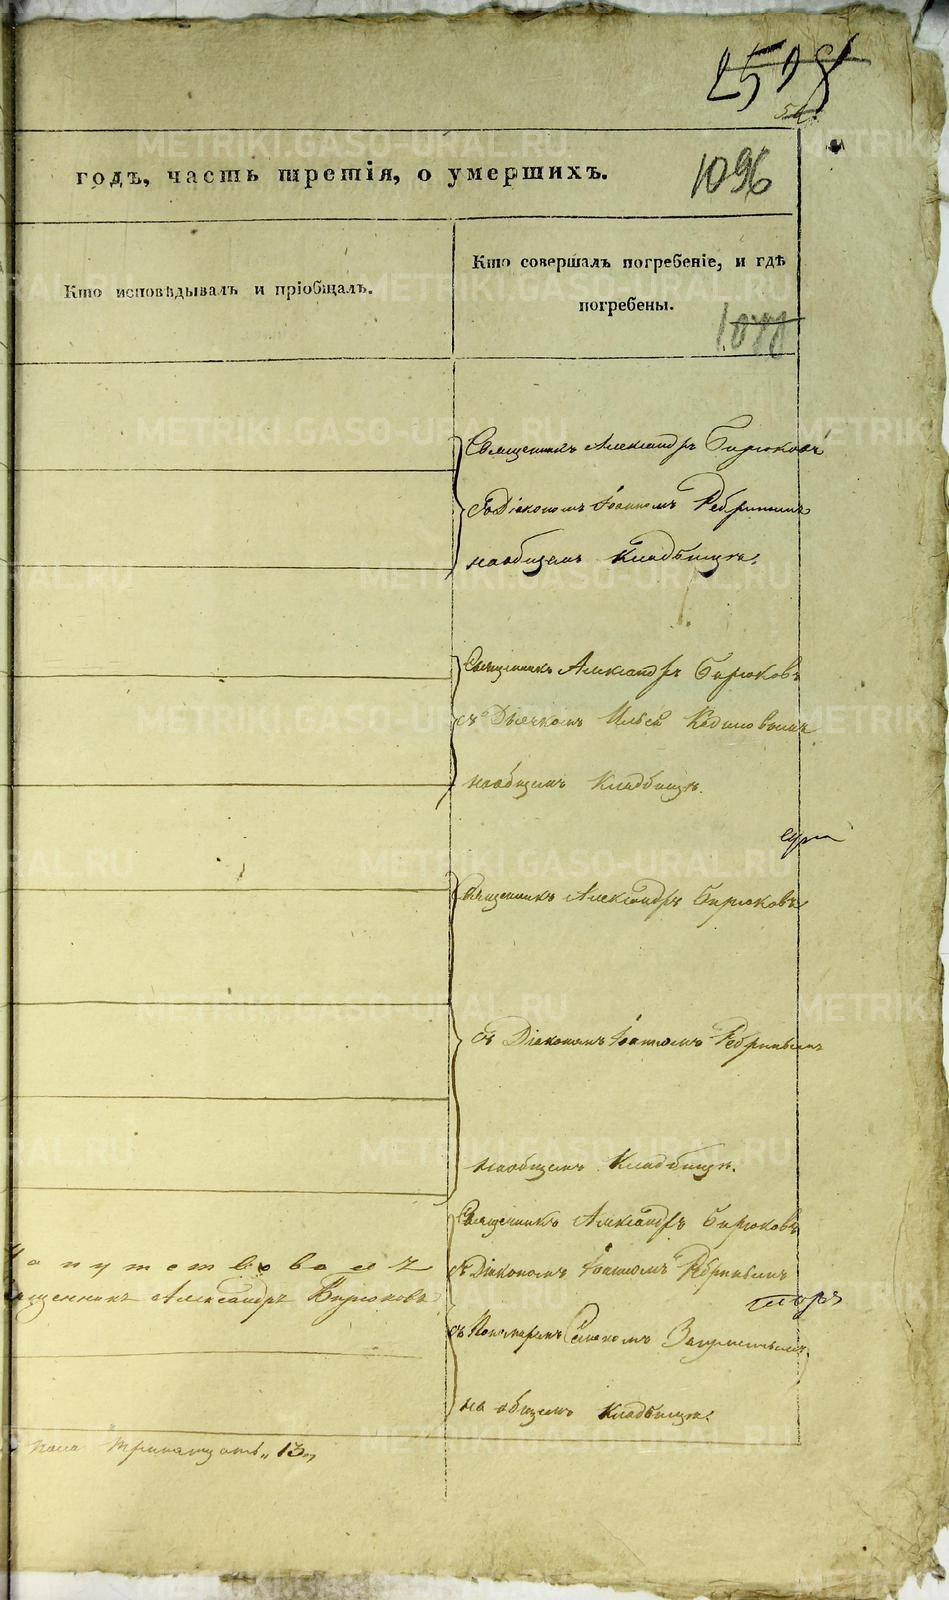 1096
годъ, часть третія, о умершихъ.
Кто исповѣдывалъ и пріобщалъ.
Кто совершалъ погребеніе, и гдѣ
погребены.
Священникъ Александръ Бирюковъ
съ Діакономъ Іоанномъ Ребринымъ
на общемъ Кладбищѣ.
Священникъ Александръ Бирюковъ
съ Дьячкомъ Ильей
на общемъ Кладбищѣ.
Священникъ Александръ Бирюковъ
съ Діакономъ Іоанномъ Ребринымъ
на общемъ Кладбищѣ.
Священникъ Александръ Бирюковъ
съ Діакономъ Іоанномъ Ребринымъ
напутствовалъ
Священникъ Александръ Бирюковъ
съ Пономаремъ
на общемъ Кладбищѣ.
пола тринатцать „13„
METRIKI.GASO-URAL.RU